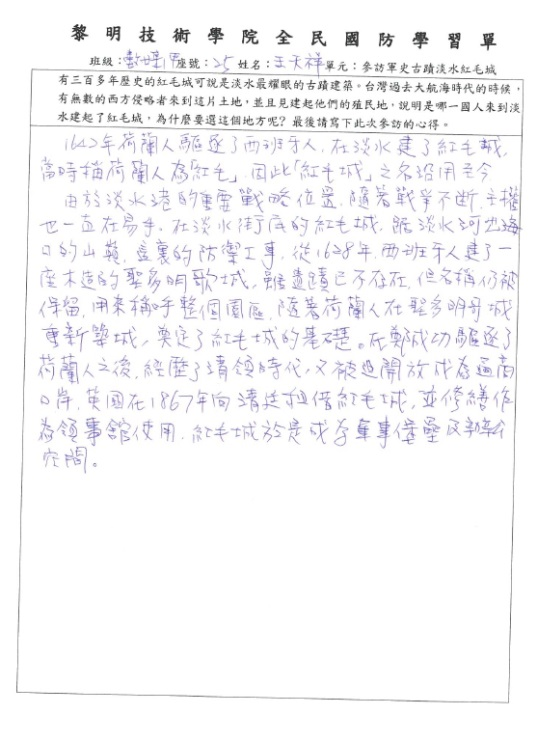 黎明技術學院全民國防學習單
班級：數媒甲 座號：25 姓名：王天祥 單元：參訪軍史古蹟淡水紅毛城
有三百多年歷史的紅毛城可說是淡水最耀眼的古蹟建築。台灣過去大航海時代的時候，
有無數的西方侵略者來到這片土地，並且見建起他們的殖民地，說明是哪一國人來到淡
水建起了紅毛城，為什麼要選這個地方呢？最後請寫下此次參訪的心得。
1642年荷蘭人驅逐了西班牙人，在淡水建了紅毛城，
當時稱荷蘭人為「紅毛」，因此「紅毛城」之名沿用至今
由於淡水港的重要戰略位置，隨著戰爭不斷，主權
也一直在易手，在淡水街底的紅毛城，踞淡水河出海
口的山巔，這裏的防禦工事，從1628年，西班牙人建了一
座木造的聖多明哥城，雖遺蹟已不存在，但名稱仍被
保留，用來稱呼整個園區，隨著荷蘭人在聖多明哥城
重新築城，奠定了紅毛城的基礎。在鄭成功驅逐了
荷蘭人之後，經歷了清領時代，又被迫開放成為通商
口岸，英國在1867年向清廷租借紅毛城，並修繕作
為領事館使用，紅毛城於是成為軍事堡壘及辦公
空間。